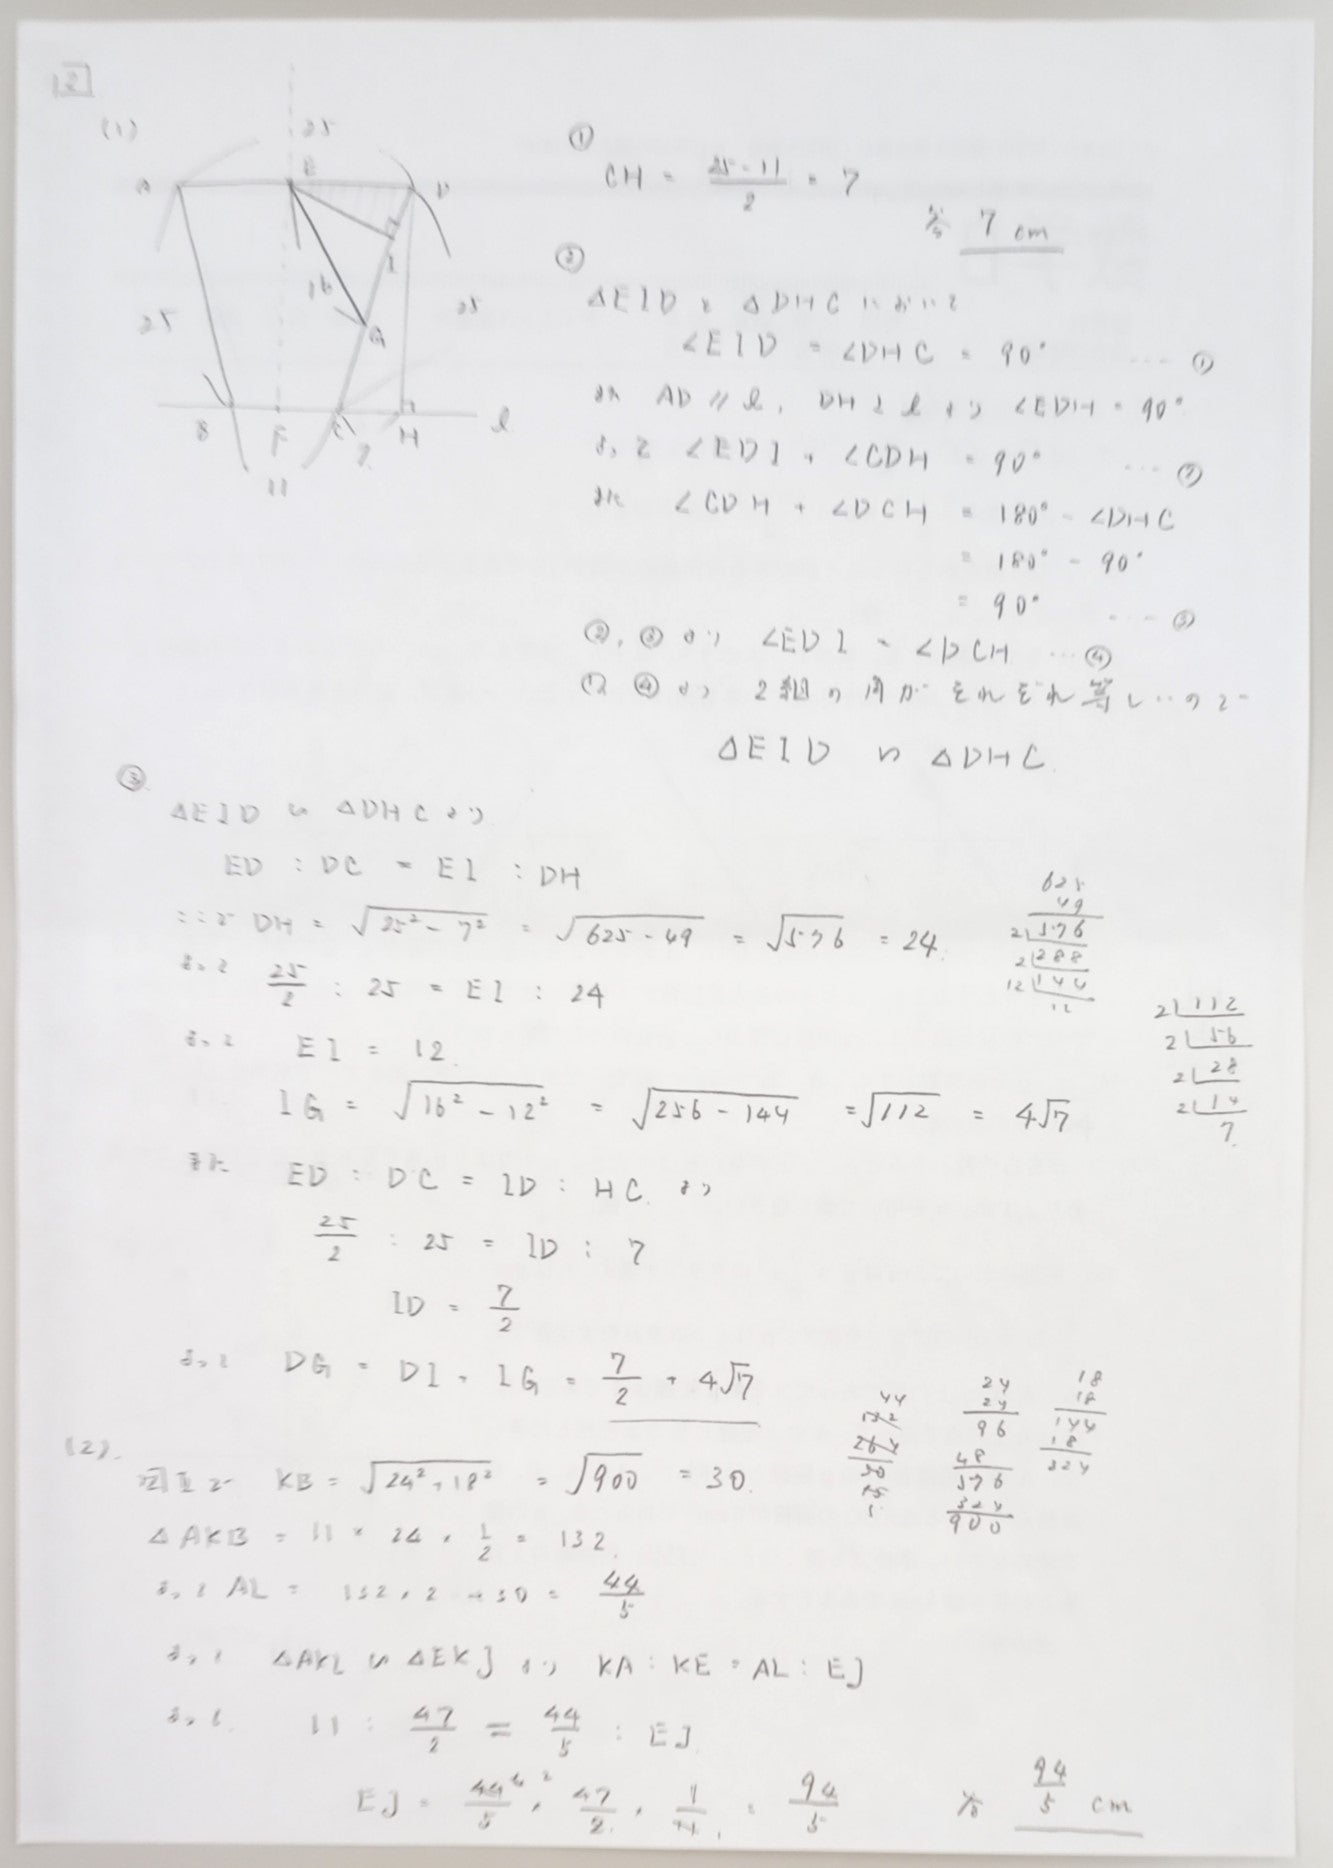 2
(1)
25
E
A
D
I
16
G
25
25
B
F
C
H
l
7
11
①
CH = (25-11)/2 = 7
答 7 cm
②
△EID と △DHC において
∠EID = ∠DHC = 90° ... ①
また AD // l, DH ⊥ l より ∠EDH = 90°
よって ∠EDI + ∠CDH = 90° ... ②
また ∠CDH + ∠DCH = 180° - ∠DHC
= 180° - 90°
= 90° ... ③
②, ③ より ∠EDI = ∠DCH ... ④
① ④ より 2組の角がそれぞれ等しいので
△EID ∽ △DHC
③
△EID ∽ △DHC より
ED : DC = EI : DH
ここで DH = √(25² - 7²) = √(625 - 49) = √576 = 24
よって 25/2 : 25 = EI : 24
よって EI = 12
IG = √(16² - 12²) = √(256 - 144) = √112 = 4√7
また ED : DC = ID : HC より
25/2 : 25 = ID : 7
ID = 7/2
よって DG = DI + IG = 7/2 + 4√7
625
49
2 576
2 288
12 144
12
2 112
2 56
2 28
2 14
7
(2)
図Ⅱで KB = √(24² + 18²) = √900 = 30
△AKB = 11 × 24 × 1/2 = 132
よって AL = 132 × 2 ÷ 30 = 44/5
よって △AKL ∽ △EKJ より KA : KE = AL : EJ
よって 11 : 47/2 = 44/5 : EJ
EJ = 44/5 × 47/2 × 1/11 = 94/5
答 94/5 cm
44
132
264
30
15
5
24
24
96
48
576
324
900
18
18
144
18
324